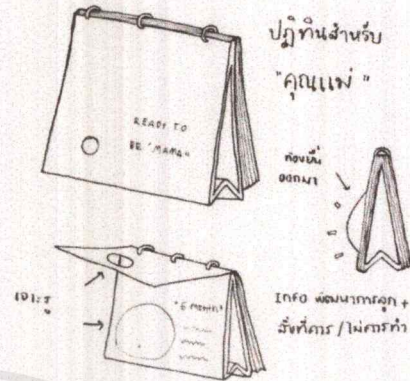 ปฏิทินสำหรับ
"คุณแม่"
READY TO
BE "MAMA"
ท้องยื่น
ออกมา
เจาะรู
"6 MONTHS"
INFO พัฒนาการลูก +
สิ่งที่ควร / ไม่ควรทำ